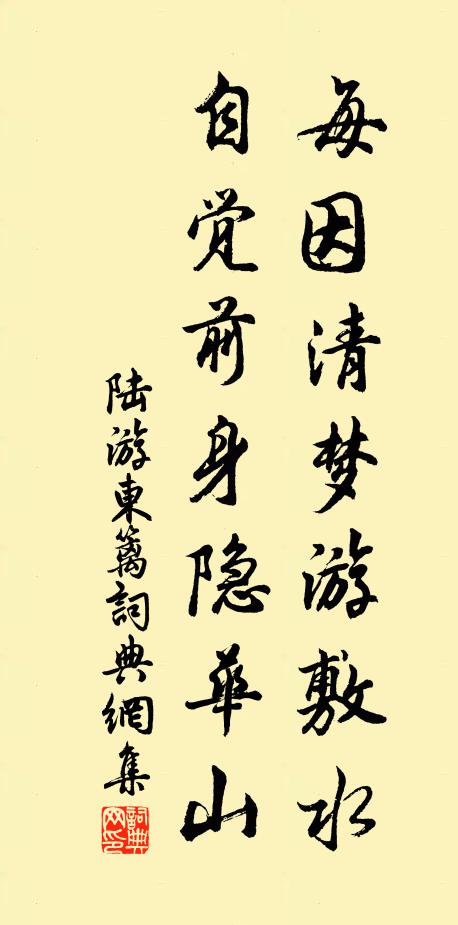 每因清梦游敷水
自觉前身隐华山
陆游東篱詞典網集
詞典网印